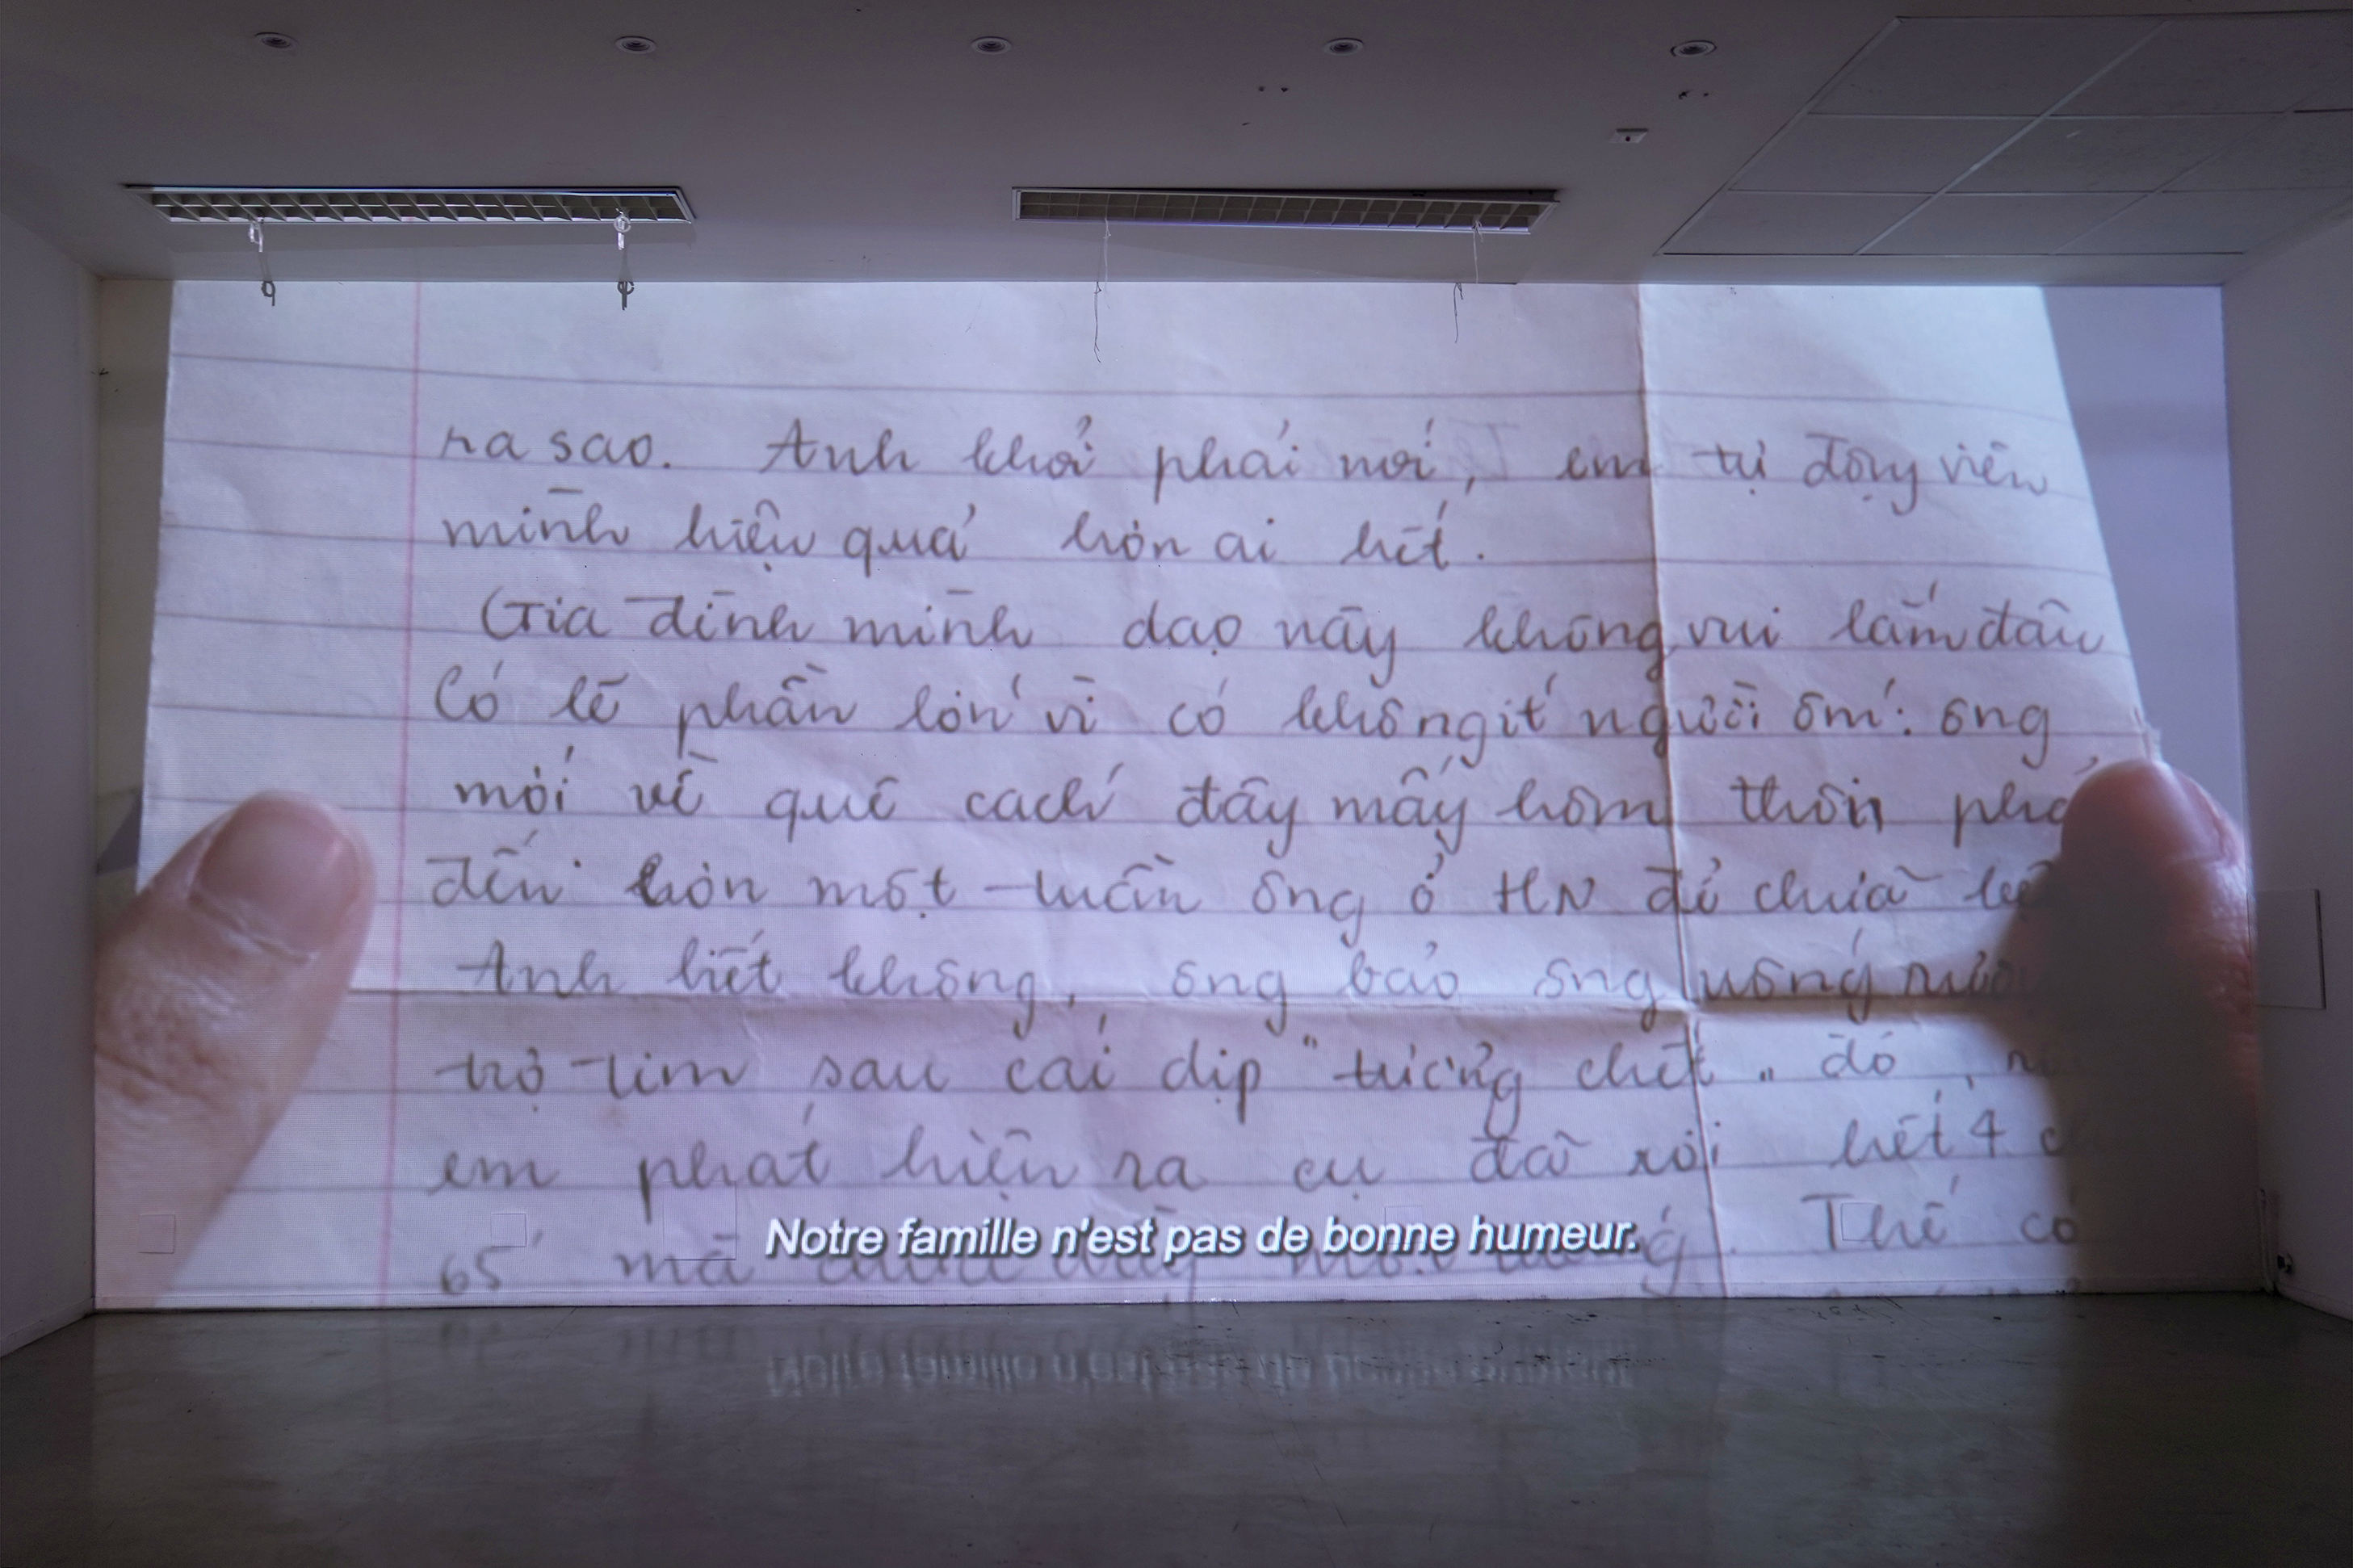 ra sao. Anh khỏi phải nói, em tự động viên
mình hiệu quả hơn ai hết.
Gia đình mình dạo này không vui lắm đâu
Có lẽ phần lớn vì có không ít người ốm: ông
mới về quê cách đây mấy hôm thôi
đến hơn một tuần ông ở HN để chữa
Anh biết không, ông bảo ông uống
trợ tim sau cái dịp "tưởng chết" đó,
em phát hiện ra cụ đã xơi hết 4
65 mà Thế có
Notre famille n'est pas de bonne humeur.